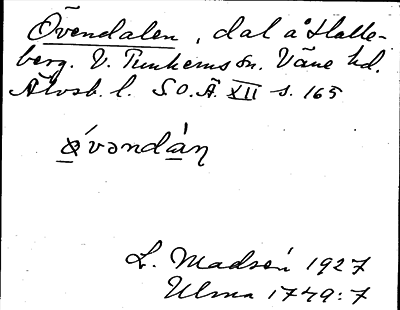 Övendalen, dal å Halle-
berg. V. Tunhems sn. Väne hd.
Älvsb. l. S O. Ä XII s. 165
ǿvəndáņ
L. Madsén 1927
Ulma 1749:7